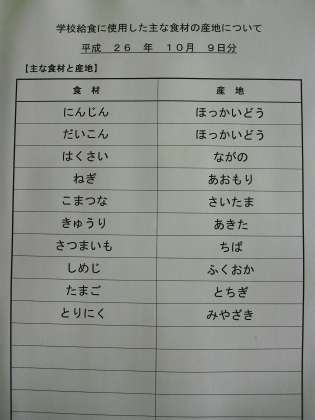 学校給食に使用した主な食材の産地について
平成 26 年 10月 9日分
【主な食材と産地】
食 材 産 地
にんじん ほっかいどう
だいこん ほっかいどう
はくさい ながの
ねぎ あおもり
こまつな さいたま
きゅうり あきた
さつまいも ちば
しめじ ふくおか
たまご とちぎ
とりにく みやざき